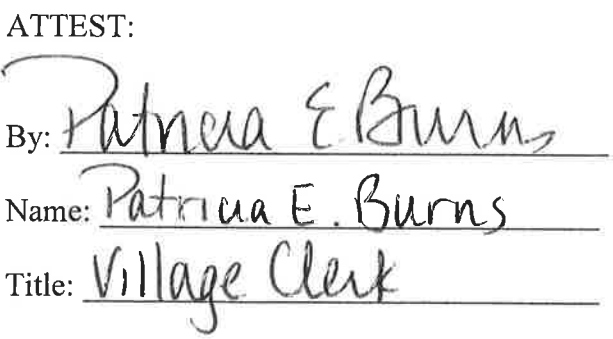 ATTEST:
By: Patricia E Burns
Name: Patricia E. Burns
Title: Village Clerk